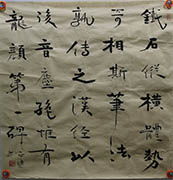 鐵石縱橫體勢
奇相斯筆法
孰傳之漢經以
後音塵絕惟有
龍顏第一碑